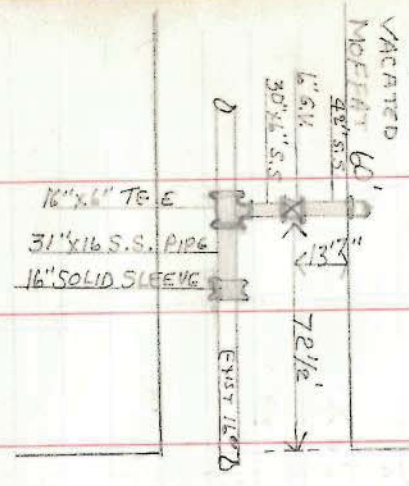 VACATED
MOFFAT 60'
42" S.S
6" G.V.
30"x6" S.S
16"x6" TEE
31"x16 S.S. PIPE
16" SOLID SLEEVE
13'7"
72 1/2'
EXIST 16"